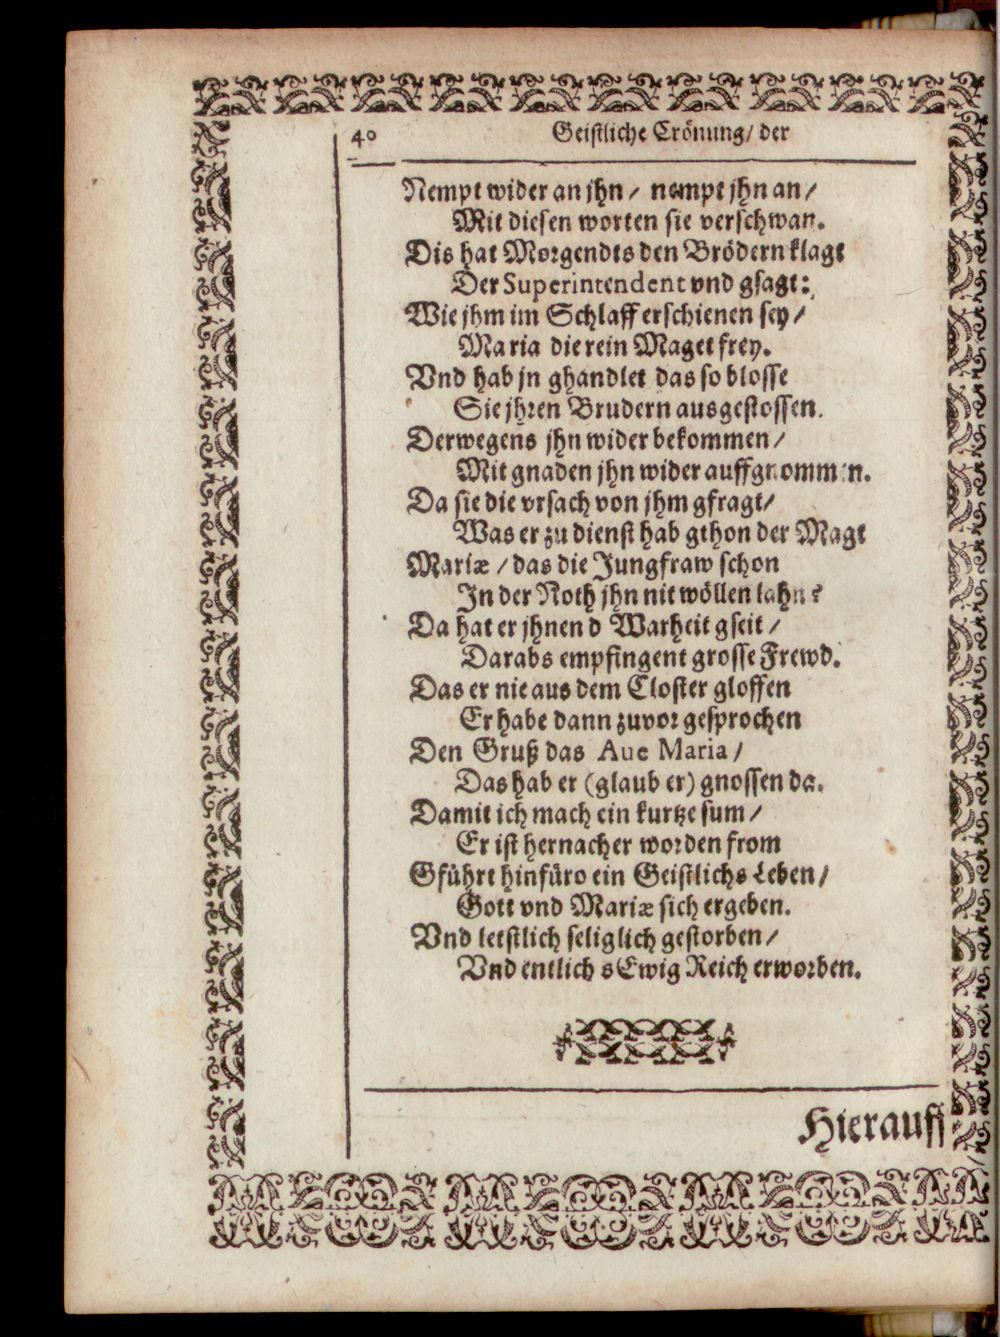 40 Geistliche Crönung/ der
Nempt wider an jhn / nempt jhn an /
Mit diesen worten sie verschwan.
Dis hat Morgendts den Brödern klagt
Der Superintendent vnd gsagt:
Wie jhm im Schlaff erschienen sey /
Maria die rein Maget frey.
Vnd hab jn ghandlet das so blosse
Sie jhren Brudern ausgestossen.
Derwegens jhn wider bekommen /
Mit gnaden jhn wider auffgnommen.
Da sie die vrsach von jhm gfragt/
Was er zu dienst hab gthon der Magt
Mariæ / das die Jungfraw schon
In der Noth jhn nit wöllen lahn?
Da hat er jhnen d Warheit gseit /
Darabs empfingent grosse Frewd.
Das er nie aus dem Closter gloffen
Er habe dann zuvor gesprochen
Den Gruß das Aue Maria /
Das hab er (glaub er) gnossen da.
Damit ich mach ein kurtze sum /
Er ist hernacher worden from
Gführt hinfüro ein Geistlichs Leben /
Gott vnd Mariæ sich ergeben.
Vnd letstlich seliglich gestorben /
Vnd entlich s Ewig Reich erworben.
Hierauff